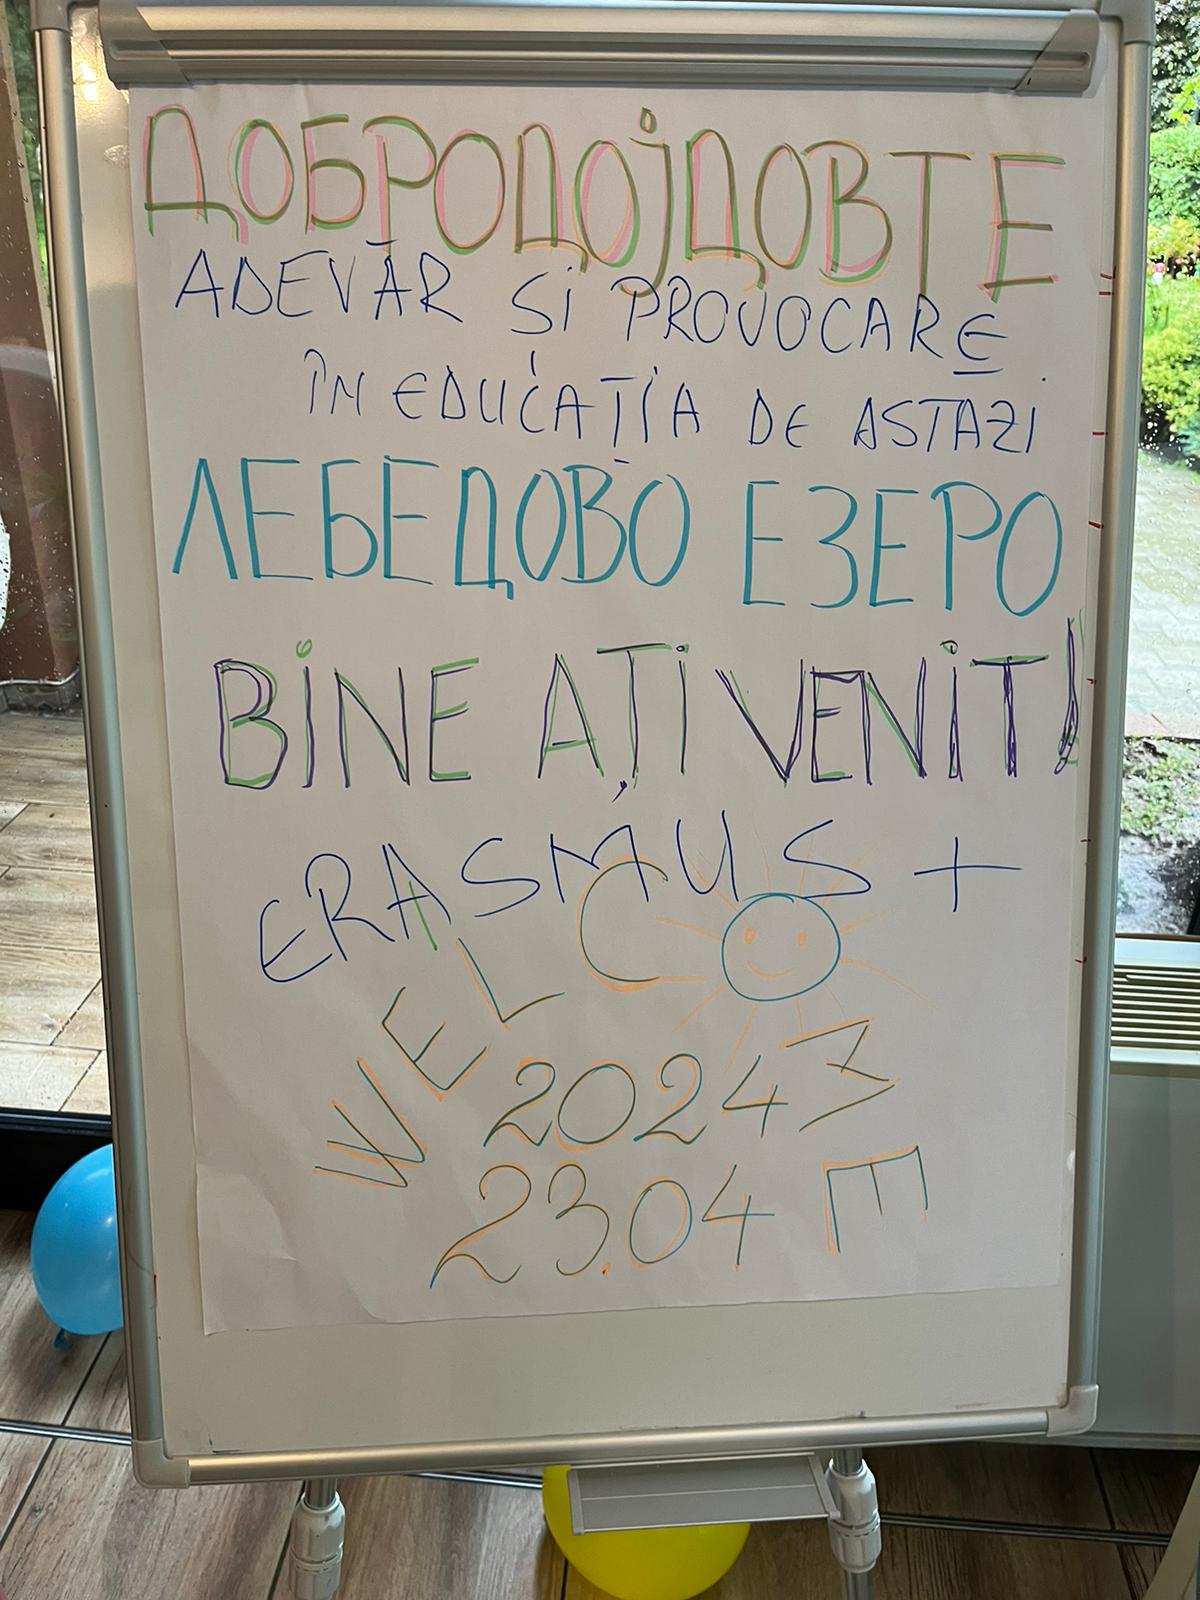 ДОБРОДОЈДОВТЕ
ADEVĂR ȘI PROVOCARE
ÎN EDUCAȚIA DE ASTAZI
ЛЕБЕДОВО ЕЗЕРО
BINE AȚI VENIT!
ERASMUS +
WELCOME
2024
23.04